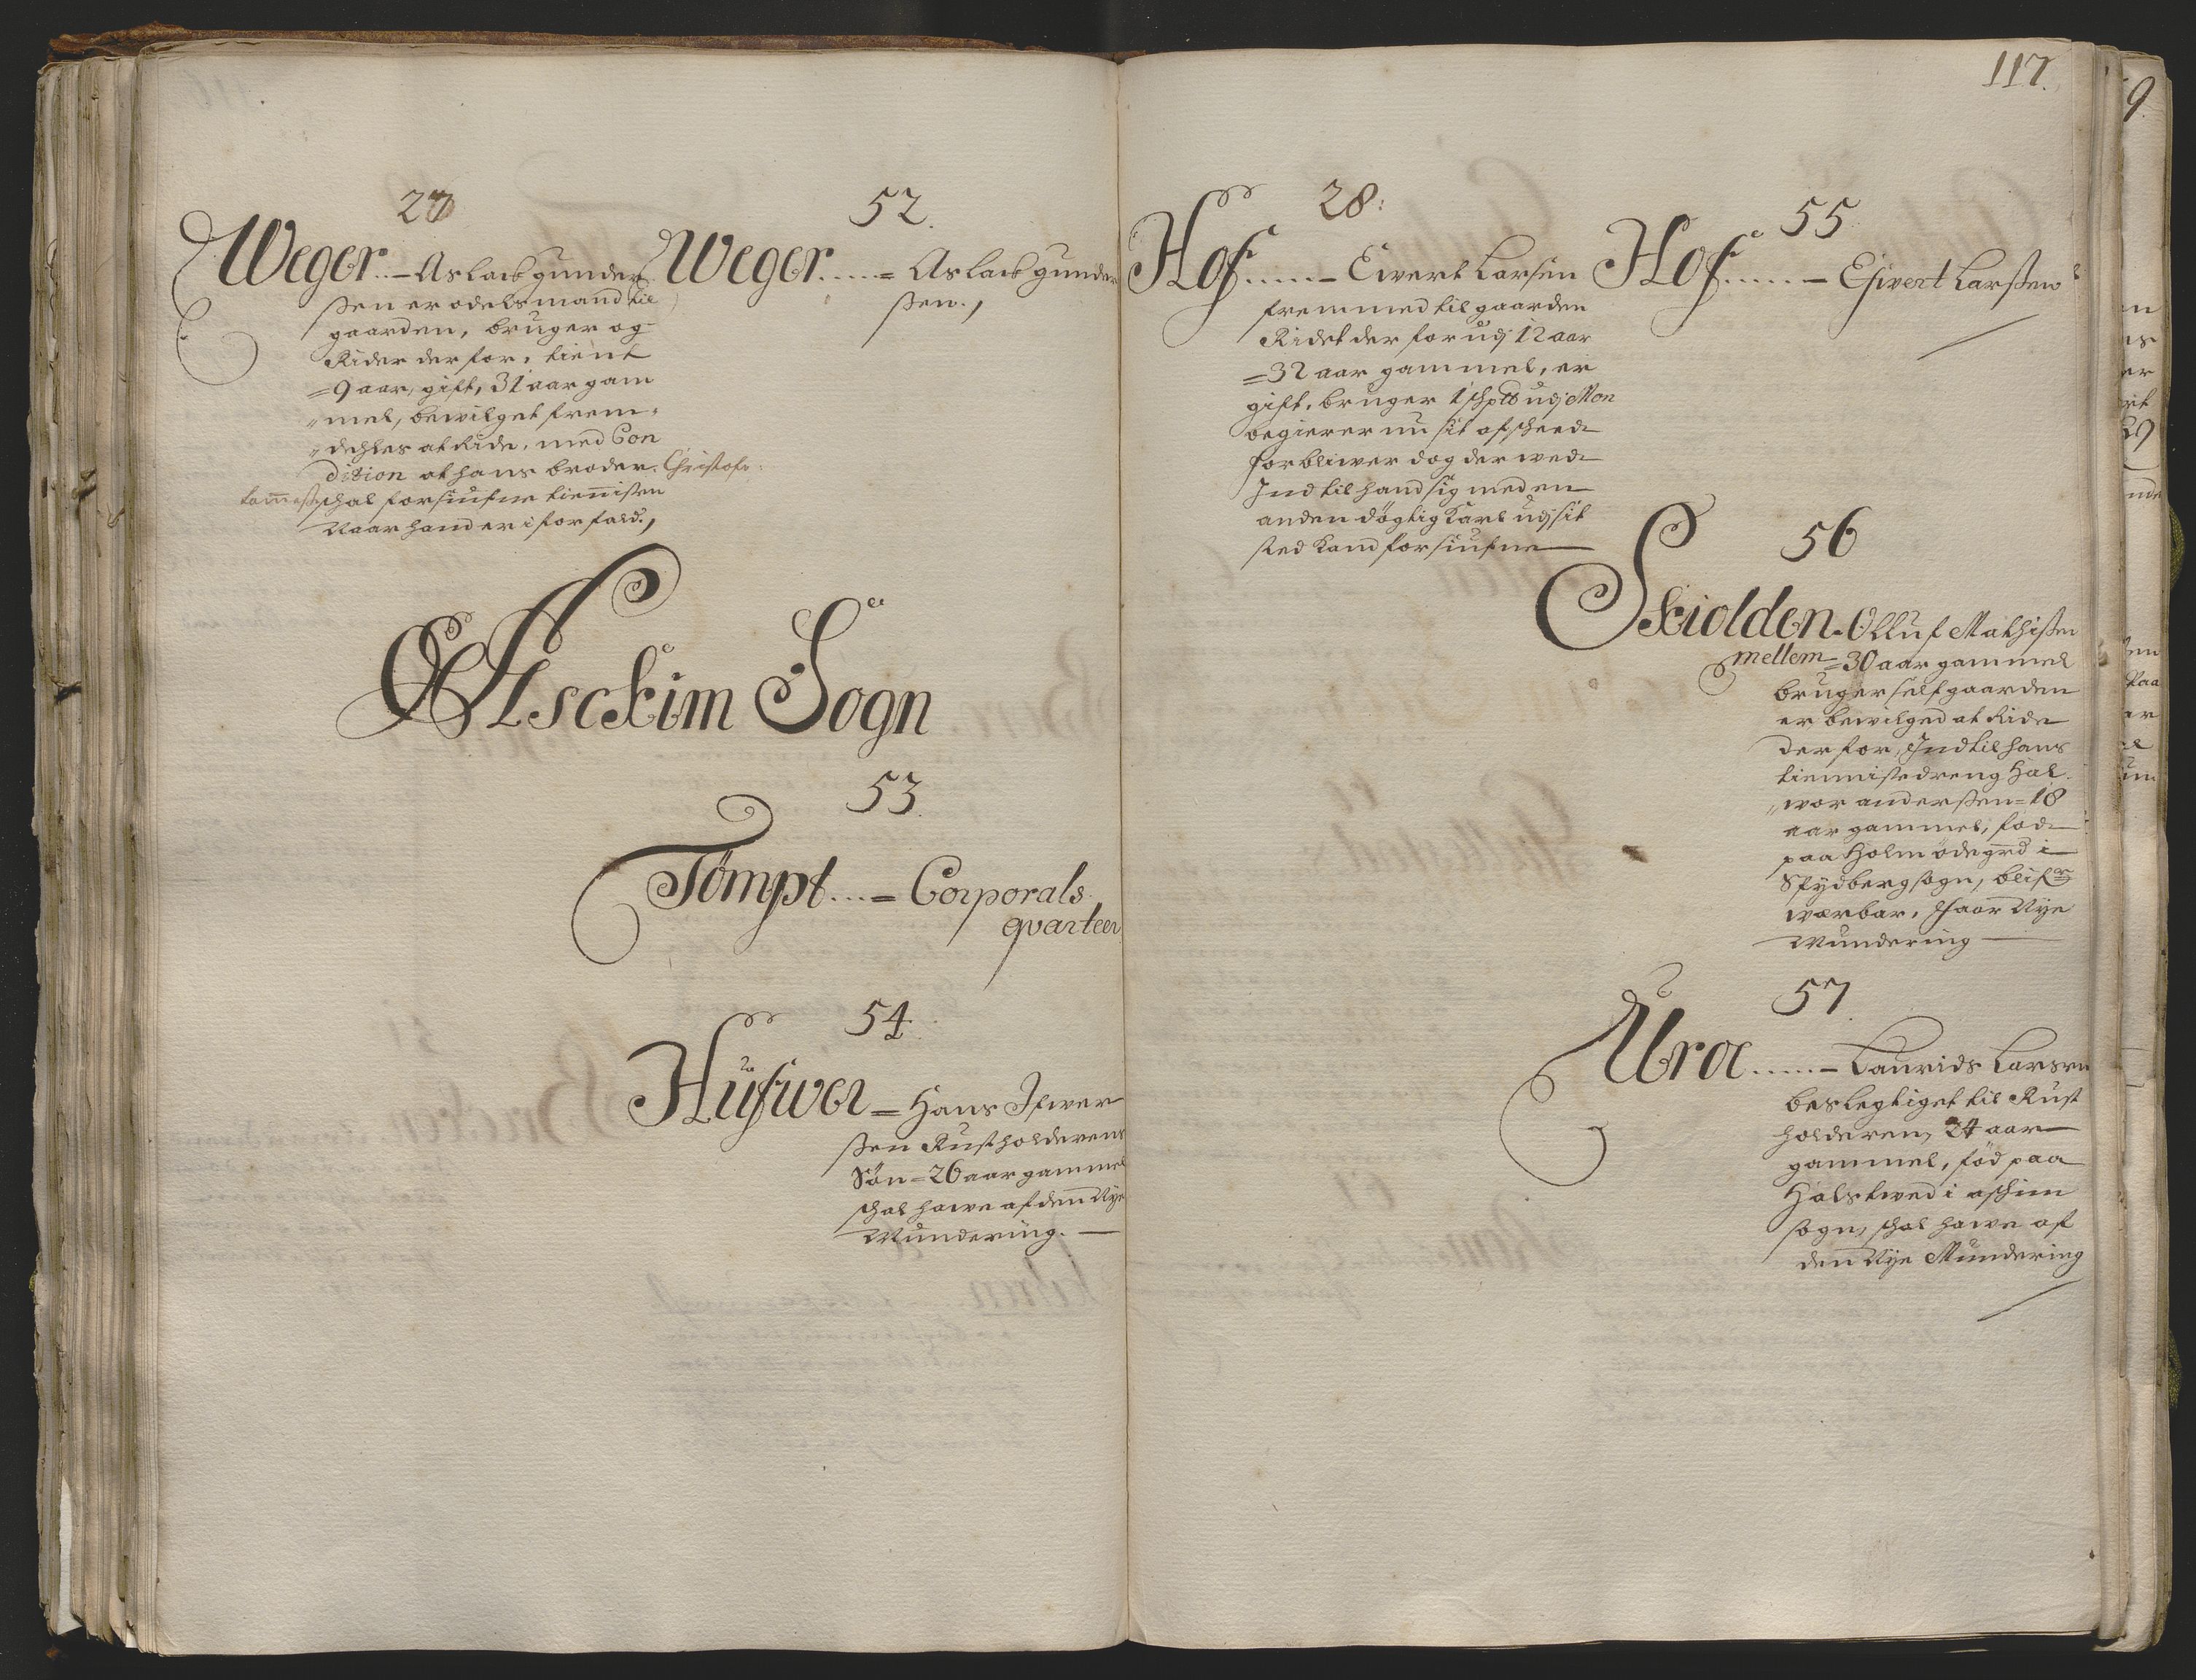 27
Weger..- Aslack gunder
ßen er odelsmand til
gaarden, bruger og
Rider der for, tient
=9 aar, gift, 31 aar gam
"mel, bewilget frem,
"dehles at Ride, med Con
dition at hans broder Christofer
schal forsiufne tienisten
Naar hand er i forfald,
52.
Weger....= Aslack gunder
ßen.,
Aschim Sogn
53.
Tømpt...= Corporals
qvarteer
54.
Hüfwer = Hans Ifwer
ßen Rustholderens
Søn = 26 aar gammel
schal hawe af den Nye
Mundering. —
117.
28:
Hof.....- Ewert Larsen
fremmed til gaarden
Ridet der for udj 12 aar
=32 aar gammel, er
gift, bruger 1 schp udj Mon
begierer nu sit afscheed
forbliwer dog der wed
Ind til hand sig med en
anden dögtig Karl udj sit
sted kand forsiufne
55
Hof.....- Ejwert Larßen
56
Skiolden. Olluf Mathißen
mellem = 30 aar gammel
bruger self gaarden
er bewilged at Ride
der for, Indtil hans
tienniste dreng Hal
"wor anderßen = 18
aar gammel, föd
paa Holm ödegrd i
Spydberg sogn, blifr
wærbar, Faar Nye
Mundering —
57.
Ura.....- Laurids Larsen
beslegtiget til Rust
holderen, 24 aar
gammel, föd paa
Halstwed i aschim
sogn, schal hawe af
den Nye Mundering